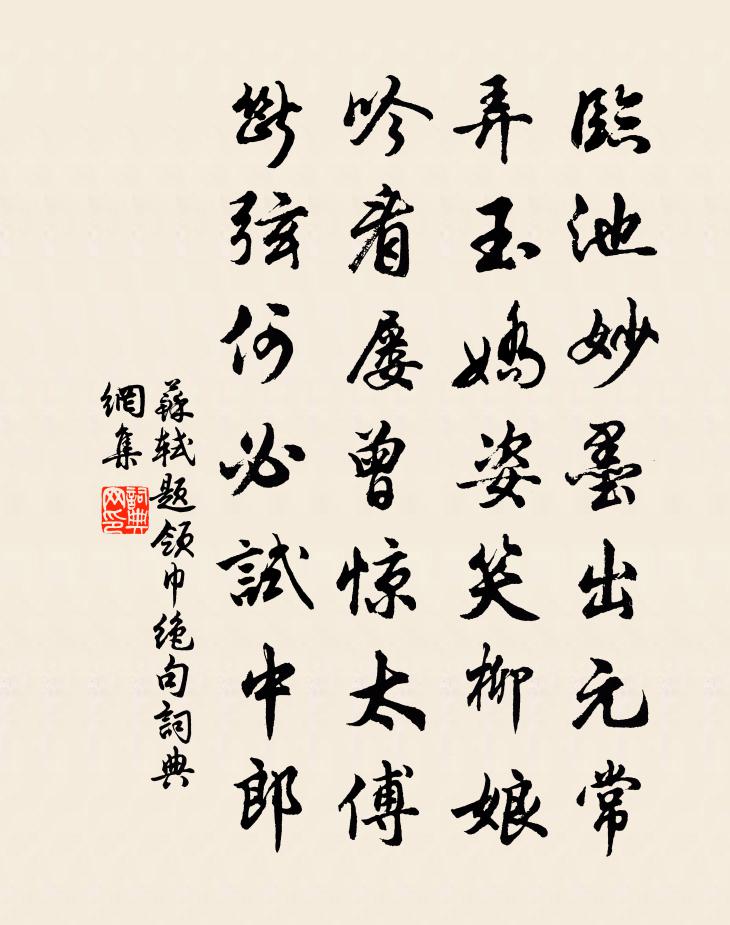 臨池妙墨出元常
弄玉嬌姿笑柳娘
吟看屡曾惊太傅
斷弦何必試中郎
蘇軾题领巾绝句詞典
網集
詞典网印